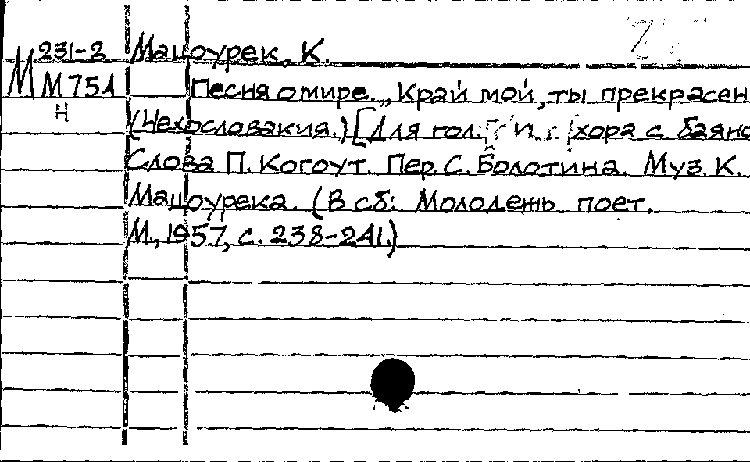 М 231-2 Мацоурек, К.
М 751 Песня о мире. „Край мой, ты прекрасен
Н (Чехословакия.) [Для гол. и хора с баяно
Слова П. Когоут. Пер. С. Болотина. Муз. К.
Мацоурека. (В сб: Молодежь поет.
М., 1957, с. 238-241.)